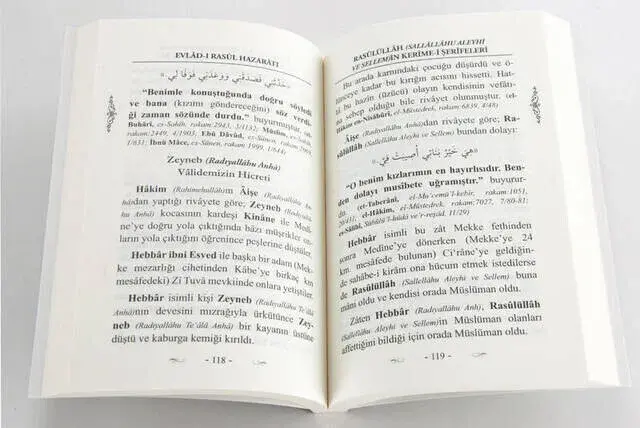 EVLÂD-I RASÛL HAZARÂTI
« حَدَّثَنِي فَصَدَقَنِي وَوَعَدَنِي فَوَفَى لِي »
“Benimle konuştuğunda doğru söyledi
ve bana (kızımı göndereceğini) söz verdi,
ği zaman sözünde durdu.” buyurmuştur.
Buhârî, es-Sahîh, rakam:2943, 3/1132; Müslim, es-Sahîh,
rakam:2449, 4/1903; Ebû Dâvûd, es-Sünen, rakam:
İbnü Mâce, es-Sünen, rakam:1999, 1/644)
Zeyneb (Radıyallâhu Anhâ)
Vâlidemizin Hicreti
Hâkim (Rahimehullâh)ın Âişe (Radıyallâhu An-
hâ)dan yaptığı rivâyete göre; Zeyneb (Radıyal-
lâhu Anhâ) kocasının kardeşi Kinâne ile Medî-
ne’ye doğru yola çıktığında bâzı müşrikler on-
ların yola çıktığını öğrenince peşlerine düştüler.
Hebbâr ibni Esved ile başka bir adam (Mek-
ke mezarlığı cihetinden Kâbe’ye birkaç km
mesâfedeki) Zî Tuvâ mevkiinde onlara yetiştiler.
Hebbâr isimli kişi Zeyneb (Radıyallâhu Te‘âlâ
Anhâ)nın devesini mızrağıyla ürkütünce Zey-
neb (Radıyallâhu Te‘âlâ Anhâ) bir kayanın üstüne
düştü ve kaburga kemiği kırıldı.
- 118 -
RASÛLÜLLÂH (SALLÂLLÂHU ALEYHİ
VE SELLEM)İN KERÎME-İ ŞERÎFELERİ
Bu arada karnındaki çocuğu düşürdü ve ö-
lünceye kadar bu kırığın acısını hissetti. Hat-
tâ bu hazin (üzücü) olayın kendisinin vefâtı-
na sebep olduğu bile rivâyet olunmuştur. (el-
Hâkim en-Nîsâbûrî, el-Müstedrek, rakam:6839, 4/48)
Âişe (Radıyallâhu Anhâ)dan rivâyete göre; Ra-
sûlüllâh (Sallellâhu Aleyhi ve Sellem) bundan dolayı:
« هِيَ خَيْرُ بَنَاتِي أُصِيبَتْ فِيَّ »
“O benim kızlarımın en hayırlısıdır. Ben-
den dolayı musibete uğramıştır.” buyurur-
du. (et-Taberânî, el-Mu‘cemü’l-kebîr, rakam:1051,
20/431; el-Hâkim, el-Müstedrek, rakam:7027, 7/80-81;
Sübülü’l-hüdâ ve’r-reşâd, 11/29)
Hebbâr isimli bu zât Mekke fethinden
sonra Medîne’ye dönerken (Mekke’ye 24
km. mesâfede bulunan) Ci‘râne’ye geldiğin-
de sahâbe-i kirâm ona hücum etmek istedilerse
de Rasûlüllâh (Sallellâhu Aleyhi ve Sellem) buna
mâni oldu ve kendisi orada Müslüman oldu.
Zâten Hebbâr (Radıyallâhu Anh), Rasûlüllâh
(Sallellâhu Aleyhi ve Sellem)in Müslüman olanları
affettiğini bildiği için orada Müslüman oldu.
- 119 -